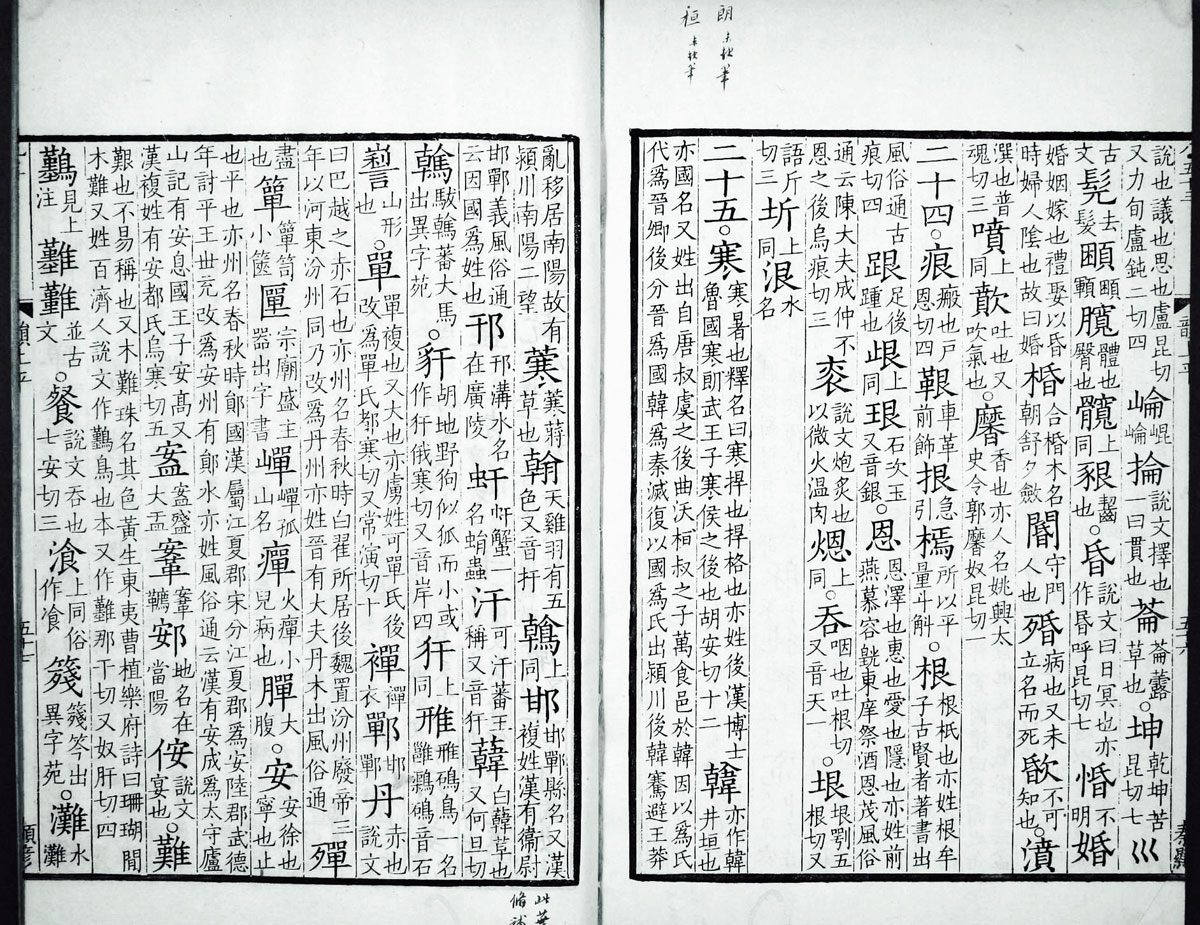 朗 未缺筆
桓 未缺筆
說也議也思也盧昆切又力旬盧鈍二切四崘崐崘掄說文擇也一曰貫也菕菕藘草也。坤乾坤苦昆切七巛
古文髡去髮頣頣顐臗臗體也臀也髖上同豤齧也。昏說文曰日冥也亦作昬呼昆切七惛不明婚
婚姻嫁也禮娶以昏時婦人陰也故曰婚棔合棔木名朝舒夕斂閽守門人也殙病也又未立名而死不可知也。濆
潠也普魂切三噴上同歕吐也又吹氣也。黁香也亦人名姚興太史令郭黁奴昆切一
二十四。痕瘢也戶恩切四鞎車革前飾拫急引㯊所以平量斗斛。根根柢也亦姓根牟子古賢者著書出
風俗通古痕切四跟足後踵也上同珢石次玉又音銀。恩恩澤也惠也愛也隱也亦姓前燕慕容皝東庠祭酒恩茂風俗
通云陳大夫成仲不恩之後烏痕切三說文炮炙也以微火温肉煾上同。吞咽也吐根切又音天一。垠垠堮五根切又
語斤切三圻上同泿水名
二十五。寒寒暑也釋名曰寒捍也捍格也亦姓後漢博士魯國寒朗武王子寒侯之後也胡安切十二韓亦作韓井垣也
亦國名又姓出自唐叔虞之後曲沃桓叔之子萬食邑於韓因以爲氏代爲晉卿後分晉爲國韓爲秦滅復以國爲氏出潁川後韓騫避王莽
亂移居南陽故有潁川南陽二望蔊蔊蔣草也翰天雞羽有五色又音扞鶾上同邯邯鄲縣名又漢複姓漢有衞尉
邯鄲義風俗通云因國爲姓也邗邗溝水名在廣陵虷虷蟹一名蛸蟲汗可汗蕃王稱又音翰白韓草也又何旦切
駻駮䮧蕃大馬出異字苑。豻胡地野狗似狐而小或作犴俄寒切又音岸四犴上同雃雃鳽鳥一名鸗鳽音石
山形也。單單複也又大也亦虜姓可單氏後改爲單氏都寒切又常演切十襌襌衣鄲邯鄲丹赤也說文
曰巴越之赤石也亦州名春秋時白翟所居後魏置汾州廢帝三年以河東汾州同乃改爲丹州亦姓晉有大夫丹木出風俗通殫
盡也簞簞笥小篋匰宗廟盛主器出字書嘽嘽孤山名癉火癉小兒病也腪大腹。安安徐也寧也止
也平也亦州名春秋時鄖國漢屬江夏郡宋分江夏郡爲安陸郡武德年討平王世充改爲安州有鄖水亦姓風俗通云漢有安成爲太守廬
山記有安息國王子安高又漢複姓有安都氏烏寒切五盗盗盛大盂鞌鞌韉䢿地名在當陽侒說文宴也。難
艱也不易稱也又木難珠名其色黃生東夷曹植樂府詩曰珊瑚閒木難又姓百濟人說文作鸛鳥也本又作難那干切又奴肝切四
見上注並古文。餐說文吞也七安切三湌上同俗作飡篯篯笒出異字苑。灘水灘